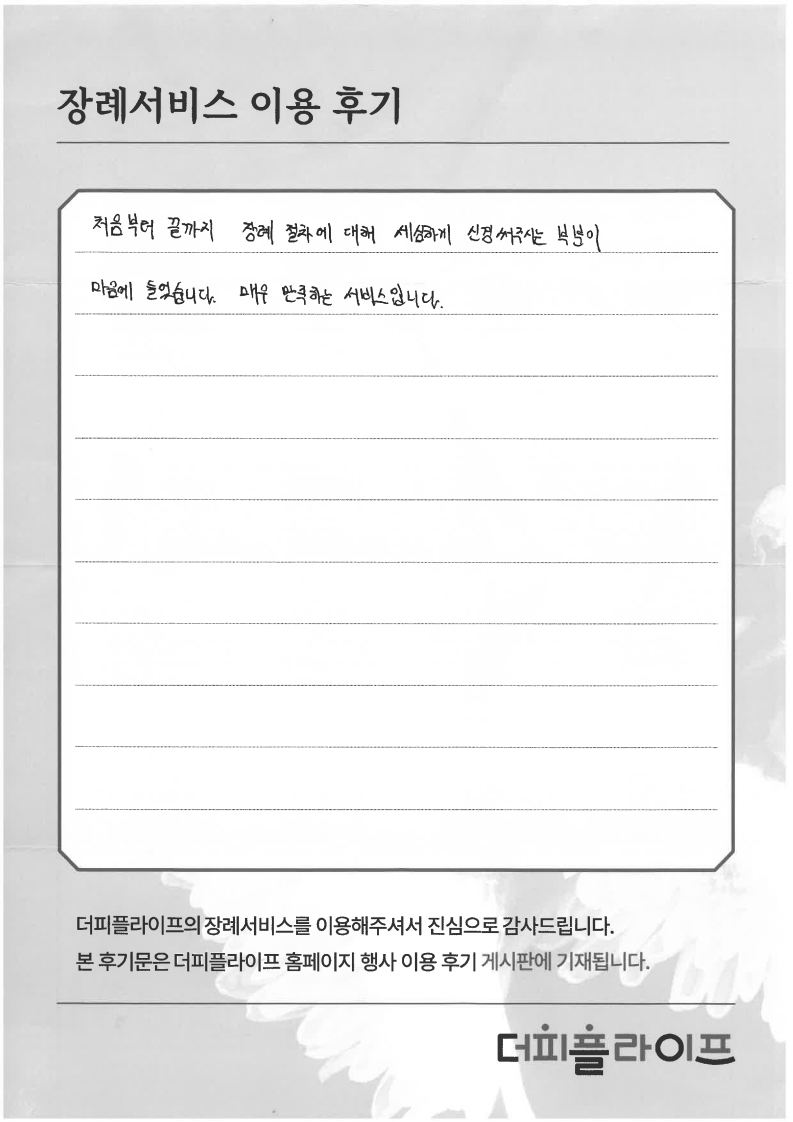 장례서비스 이용 후기
처음부터 끝까지 장례 절차에 대해 세심하게 신경써주시는 부분이
마음에 들었습니다. 매우 만족하는 서비스입니다.
더피플라이프의 장례서비스를 이용해주셔서 진심으로 감사드립니다.
본 후기문은 더피플라이프 홈페이지 행사 이용 후기 게시판에 기재됩니다.
더피플라이프